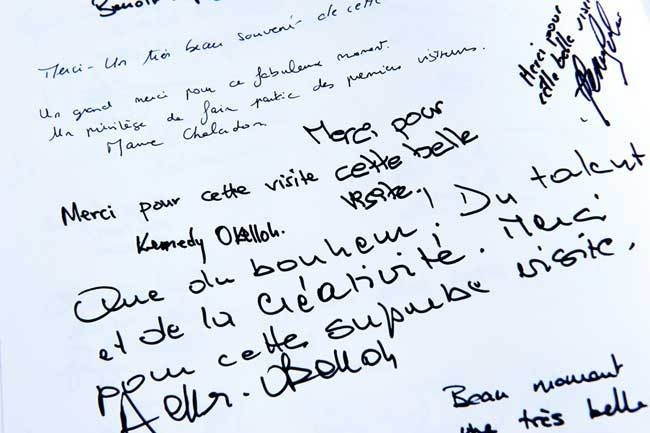 Merci - Un très beau souvenir de cette
Un grand merci pour ce fabuleux moment.
Un privilège de fair partie des premiers visiteurs.
Merci pour
cette belle
Merci pour
cette belle
visite.
Merci pour cette visite
Kennedy Okelloh.
Que du bonheur! Du talent
et de la créativité. Merci
pour cette supurbe visite.
Okelloh
Beau moment
une très belle